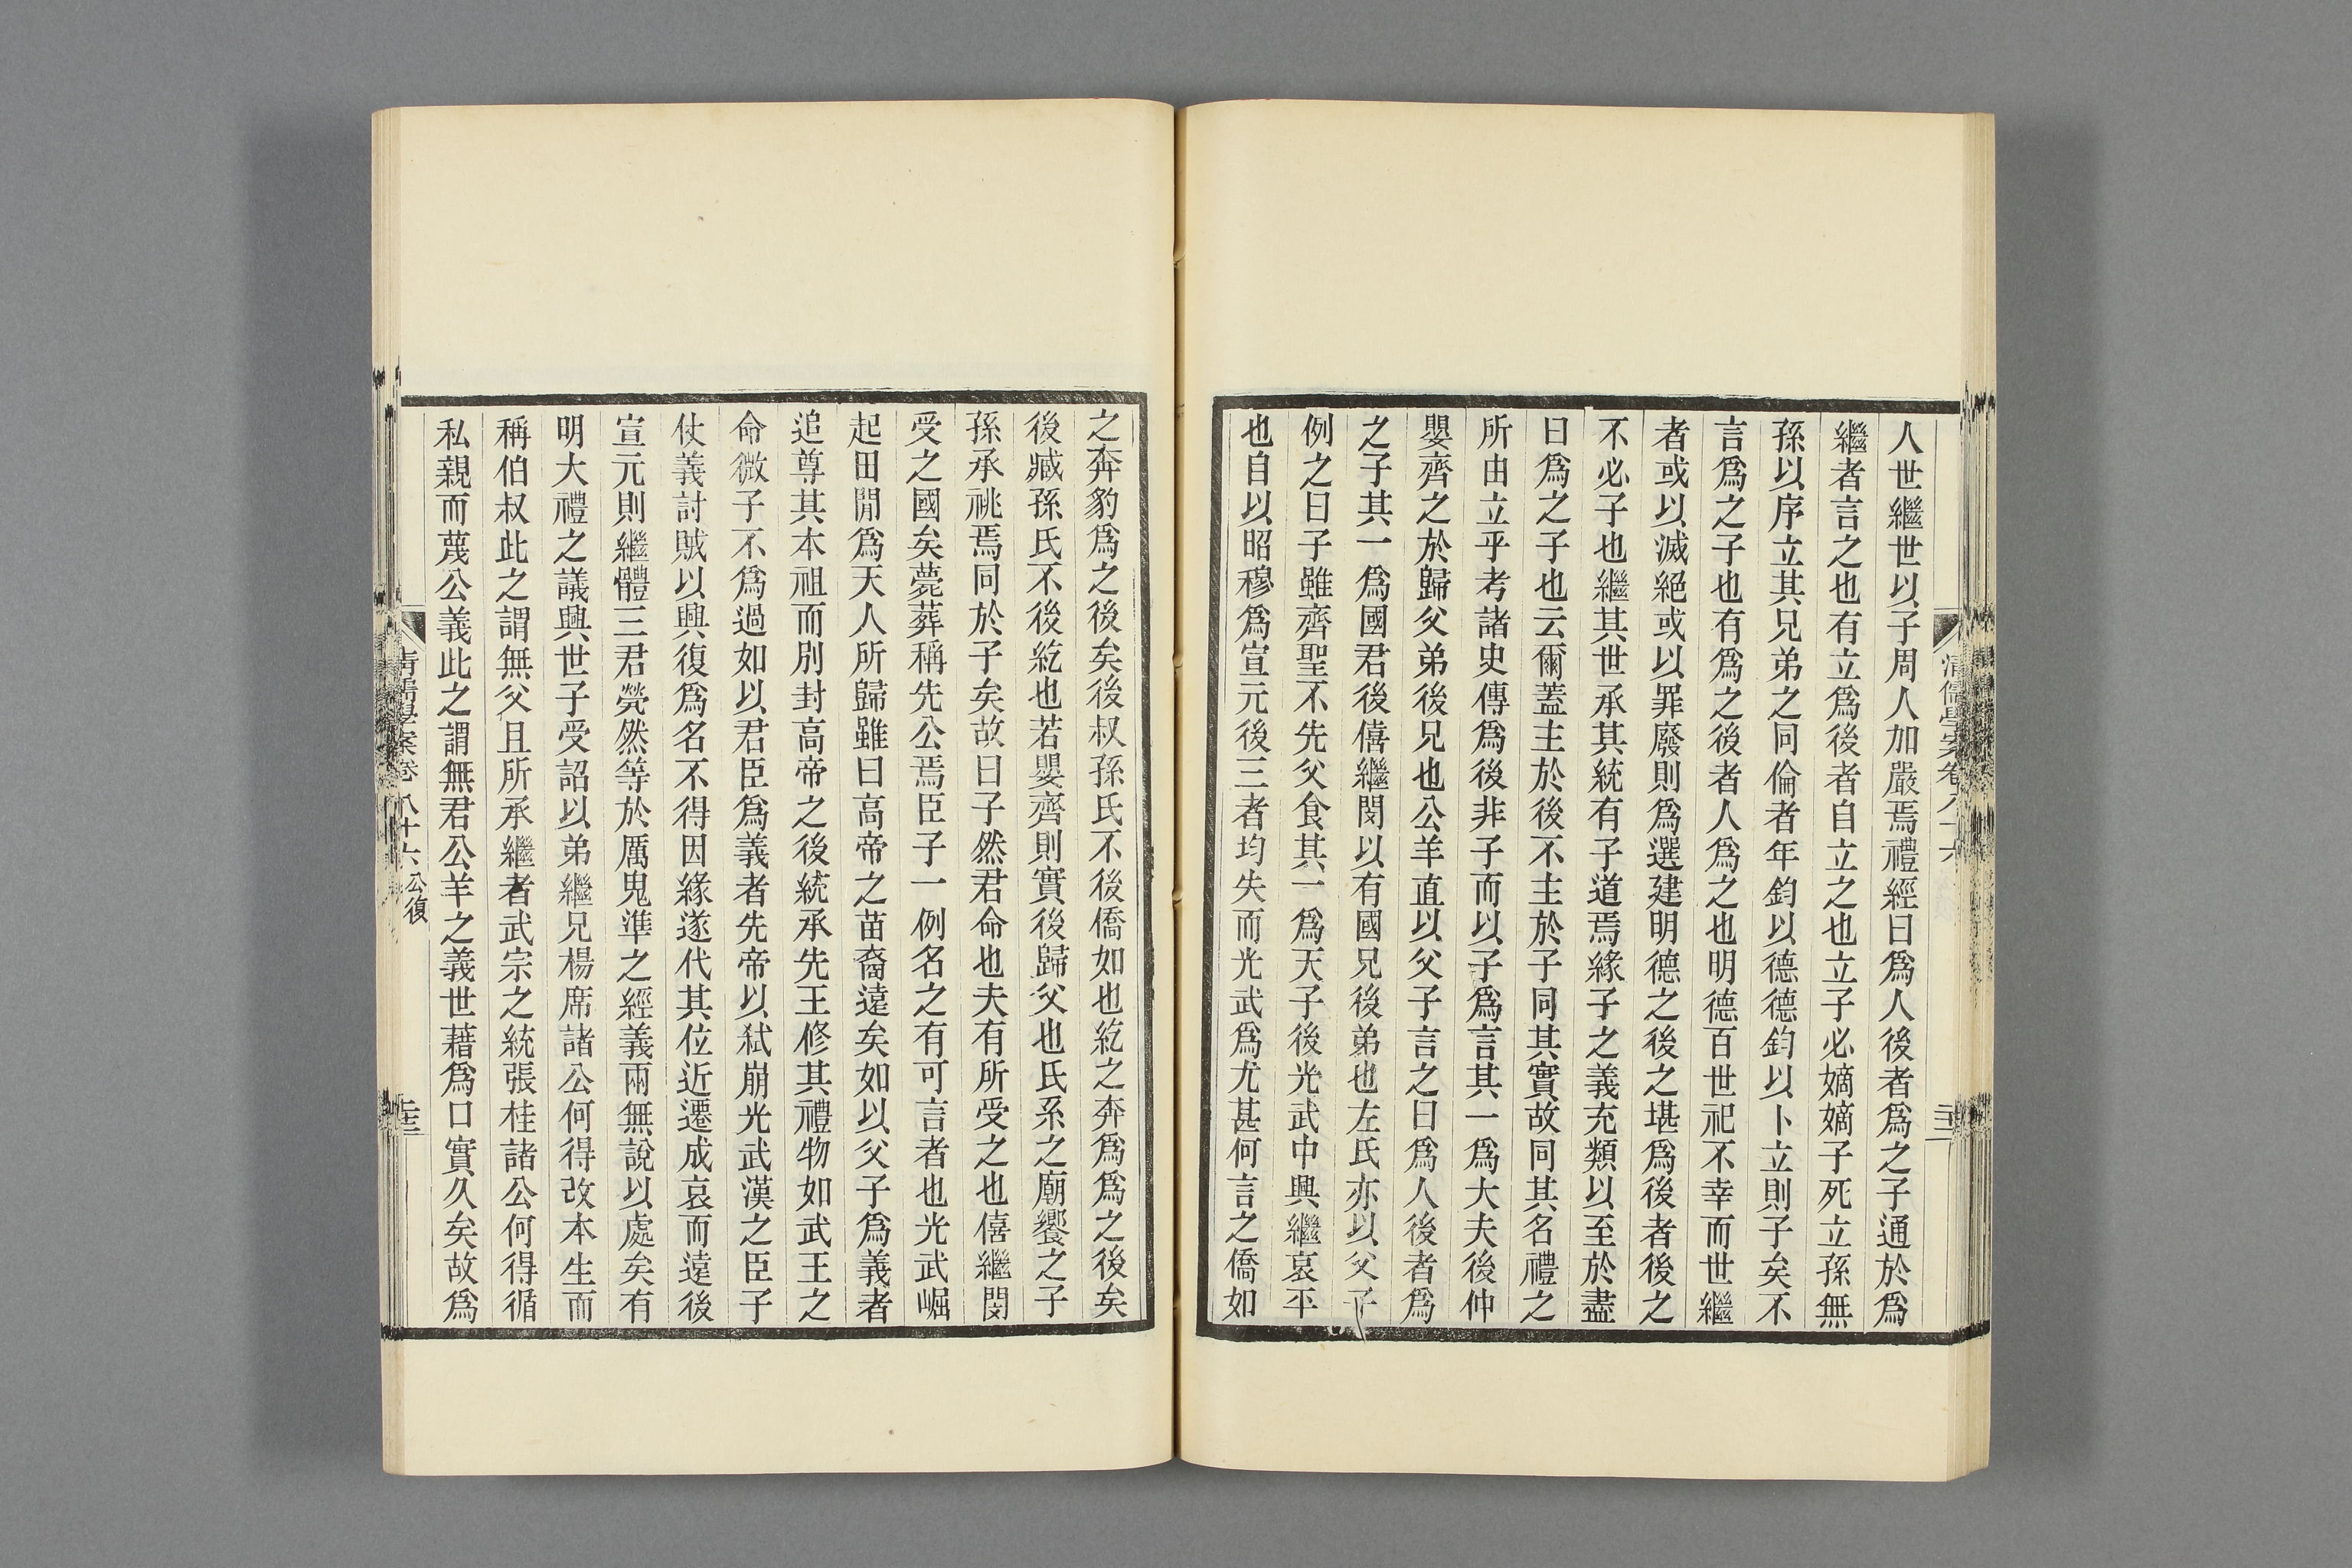 人世繼世以子周人加嚴焉禮經曰爲人後者爲之子通於爲
繼者言之也有立爲後者自立之也立子必嫡嫡子死立孫無
孫以序立其兄弟之同倫者年鈞以德德鈞以卜立則子矣不
言爲之子也有爲之後者人爲之也明德百世祀不幸而世繼
者或以滅絕或以罪廢則爲選建明德之後之堪爲後者後之
不必子也繼其世承其統有子道焉緣子之義充類以至於盡
曰爲之子也云爾蓋主於後不主於子同其實故同其名禮之
所由立乎考諸史傳爲後非子而以子爲言其一爲大夫後仲
嬰齊之於歸父弟後兄也公羊直以父子言之曰爲人後者爲
之子其一爲國君後僖繼閔以有國兄後弟也左氏亦以父子
例之曰子雖齊聖不先父食其一爲天子後光武中興繼哀平
也自以昭穆爲宣元後三者均失而光武爲尤甚何言之僑如
之奔豹爲之後矣後叔孫氏不後僑如也紇之奔爲爲之後矣
後臧孫氏不後紇也若嬰齊則實後歸父也氏系之廟饗之子
孫承祧焉同於子矣故曰子然君命也夫有所受之也僖繼閔
受之國矣薨葬稱先公焉臣子一例名之有可言者也光武崛
起田閒爲天人所歸雖曰高帝之苗裔遠矣如以父子爲義者
追尊其本祖而別封高帝之後統承先王修其禮物如武王之
命微子不爲過如以君臣爲義者先帝以弒崩光武漢之臣子
仗義討賊以興復爲名不得因緣遂代其位近遷成哀而遠後
宣元則繼體三君煢然等於厲鬼準之經義兩無說以處矣有
明大禮之議興世子受詔以弟繼兄楊席諸公何得改本生而
稱伯叔此之謂無父且所承繼者武宗之統張桂諸公何得循
私親而蔑公義此之謂無君公羊之義世藉爲口實久矣故爲
清儒學案卷八十六 公復